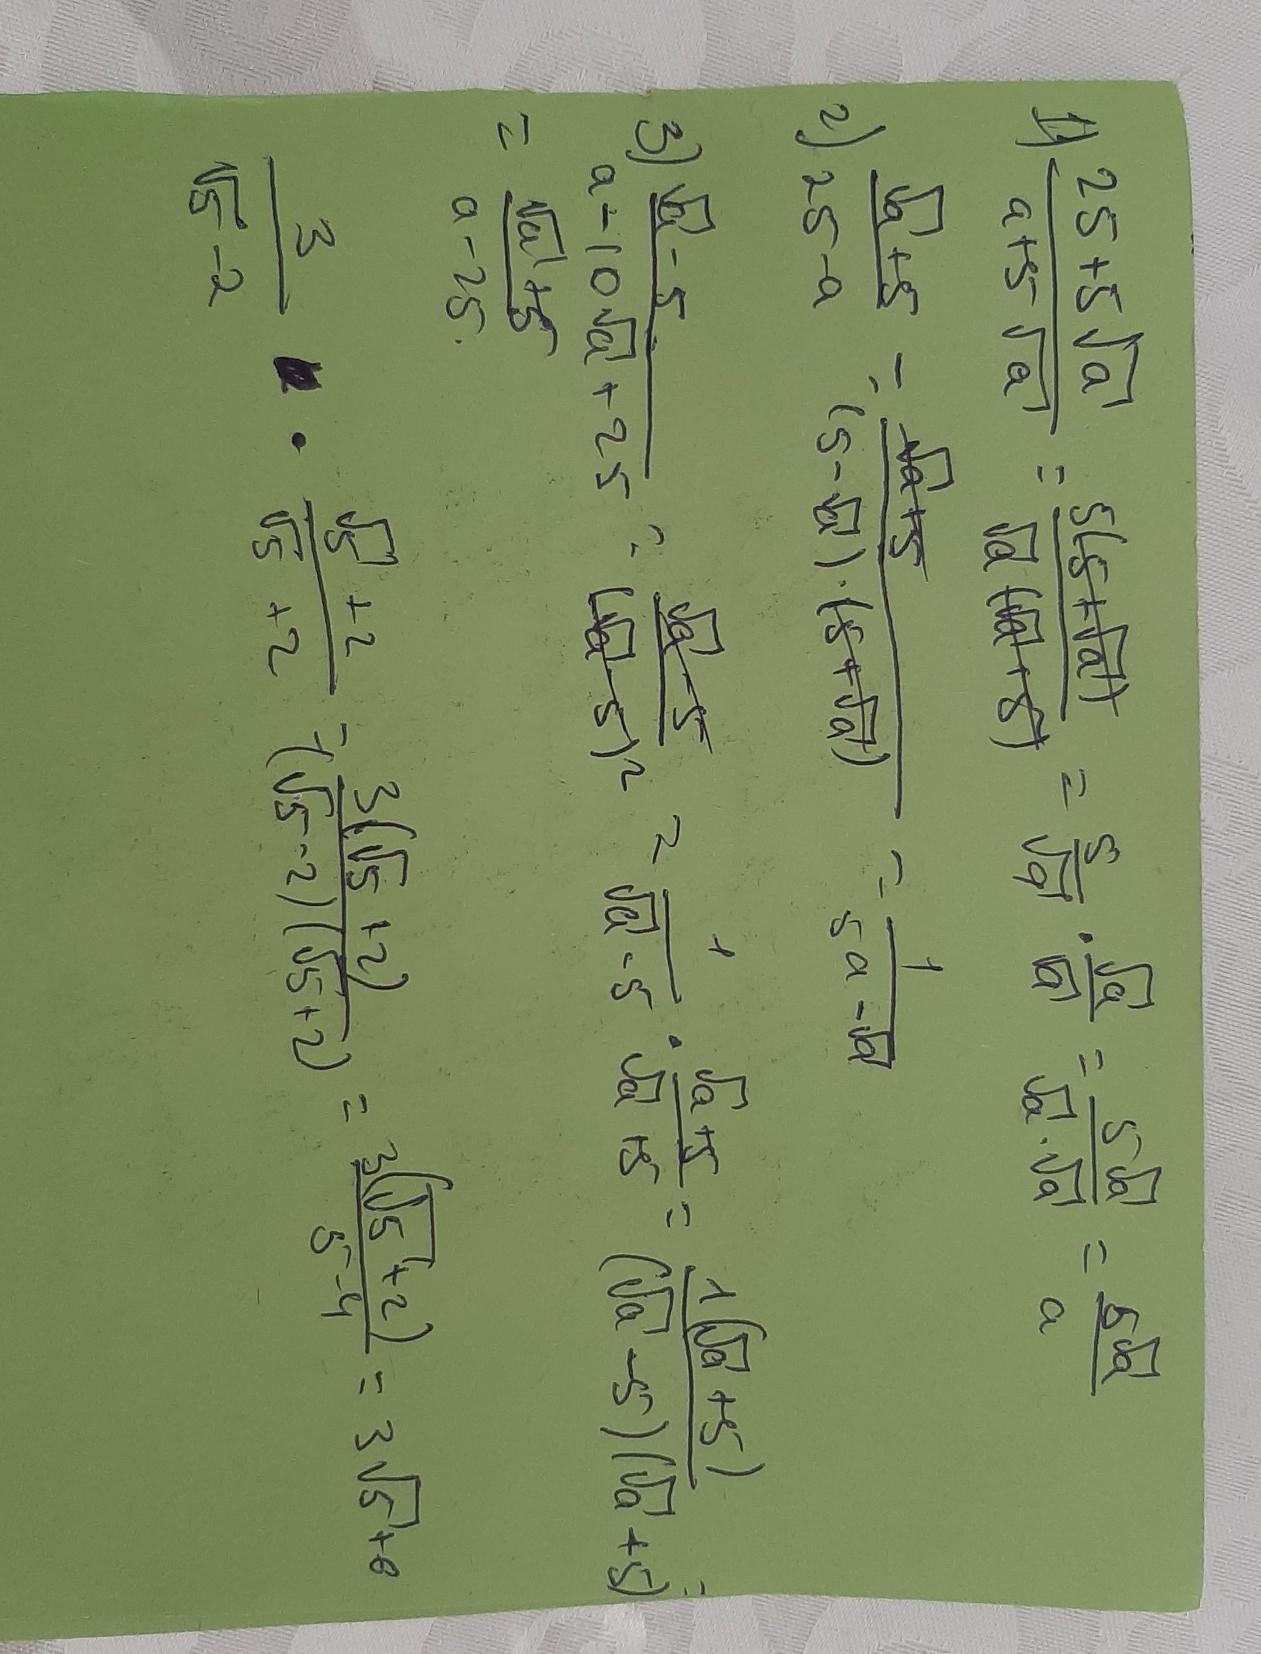 1) (25+5√a)/(a+5√a) = 5(5+√a)/√a(√a+5) = 5/√a · √a/√a = 5√a/√a·√a = 5√a/a
2) (√a+5)/(25-a) = (√a+5)/(5-√a)·(5+√a) = 1/(5a-√a)
3) (√a-5)/(a-10√a+25) = (√a-5)/(√a-5)² = 1/(√a-5) · (√a+5)/(√a+5) = 1(√a+5)/(√a-5)(√a+5) =
= (√a+5)/(a-25.)
3/(√5-2) · (√5+2)/(√5+2) = 3(√5+2)/(√5-2)(√5+2) = 3(√5+2)/(5-4) = 3√5+6